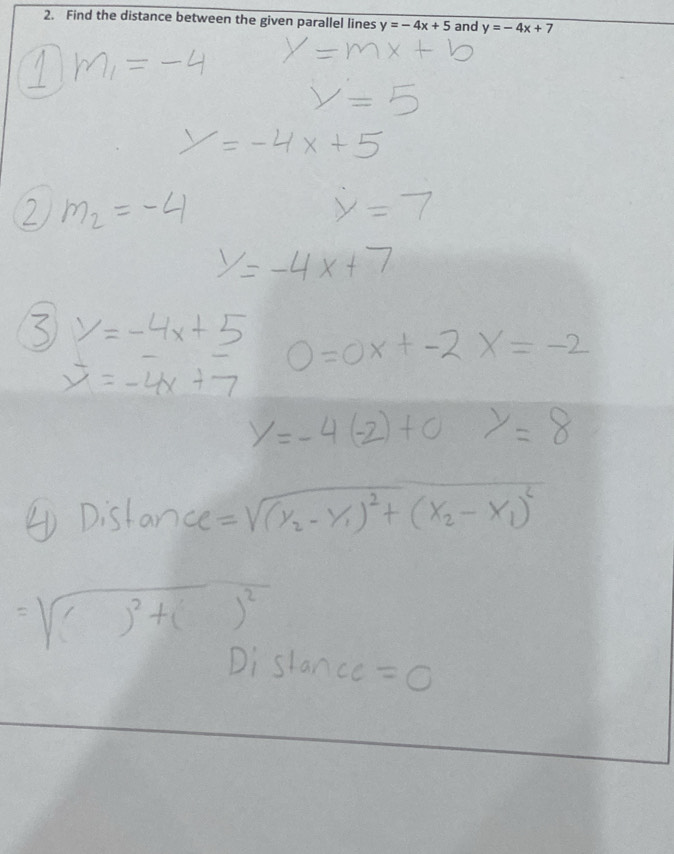 2. Find the distance between the given parallel lines y = – 4x + 5 and y = – 4x + 7
① m₁ = -4 y = mx + b
y = 5
y = -4x + 5
② m₂ = -4 y = 7
y = -4x + 7
③ y = -4x + 5 0 = 0x + -2 x = -2
y = -4x + 7
y = -4(-2) + 0 y = 8
④ Distance = √(y₂ - y₁)² + (x₂ - x₁)²
= √( )² + ( )²
Distance = 0